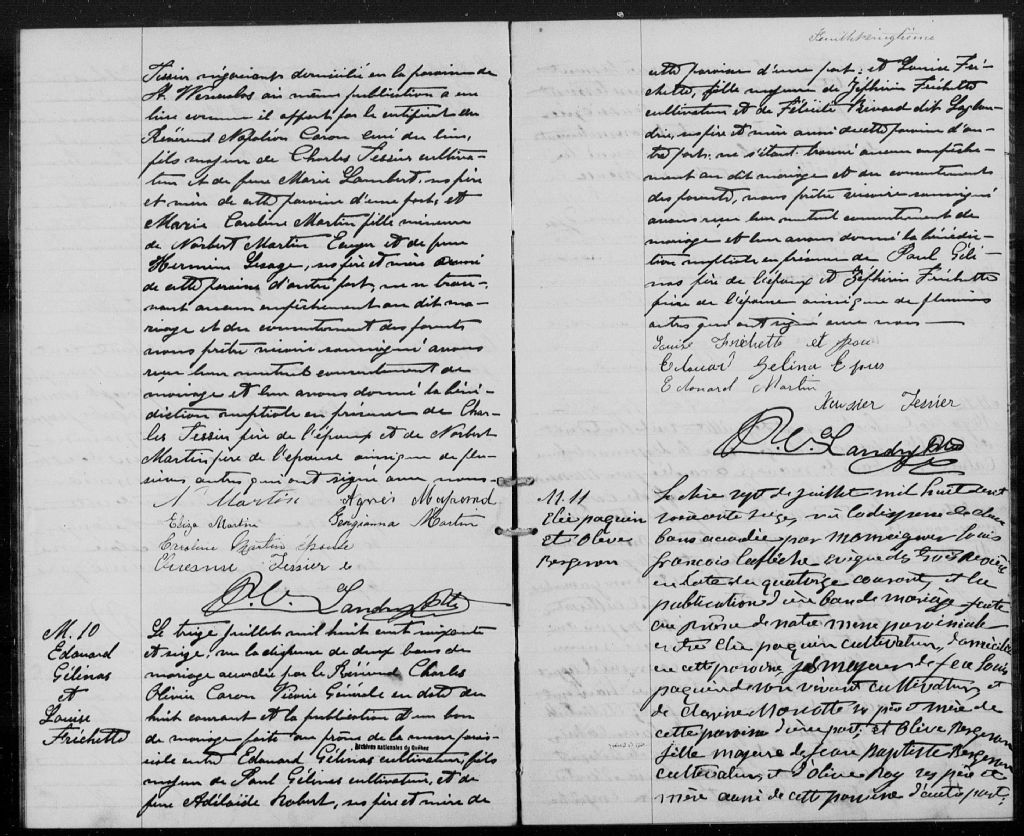 Tessier négociant domicilié en la paroisse de
St. Wenceslas où même publication a eu
lieu comme il appert par le certificat du
Révérend Napoléon Caron curé du lieu,
fils majeur de Charles Tessier cultiva-
teur et de feue Marie Lambert, ses père
et mère de cette paroisse d'une part, et
Marie Caroline Martin fille mineure
de Norbert Martin et de feue
Hermine Lesage, ses père et mère aussi
de cette paroisse d'autre part, ne s'trou-
vant aucun empêchement au dit ma-
riage et du consentement des parents
nous prêtre vicaire soussigné avons
reçu leur mutuel consentement de
mariage et leur avons donné la béné-
diction nuptiale en présence de Char-
les Tessier père de l'époux et de Norbert
Martin père de l'épouse ainsi que de plu-
sieurs autres qui ont signé avec nous.
N Martin Agnès
Eliza Martin Georgianna Martin
Caroline Martin épouse
Tessier
Landry Ptre
M. 10
Edouard
Gélinas
et
Louise
Fréchette
Le treize juillet mil huit cent soixante
et seize, vu la dispense de deux bans de
mariage accordée par le Révérend Charles
Olivier Caron Vicaire Général en date du
huit courant et la publication d'un ban
de mariage faite au prône de la messe parois-
siale entre Edouard Gélinas cultivateur, fils
majeur de Paul Gélinas cultivateur, et de
feue Adélaïde Robert, ses père et mère de
Archives nationales du Québec
Feuillet vingtième
cette paroisse d'une part; et Louise Fré-
chette, fille majeure de Zéphirin Fréchette
cultivateur et de Félicité Rivard dit
ses père et mère aussi de cette paroisse d'au-
tre part; ne s'étant trouvé aucun empêche-
ment au dit mariage et du consentement
des parents, nous prêtre vicaire soussigné
avons reçu leur mutuel consentement de
mariage et leur avons donné la bénédic-
tion nuptiale en présence de Paul Géli-
nas père de l'époux et Zéphirin Fréchette
père de l'épouse ainsi que de plusieurs
autres qui ont signé avec nous
Louise Fréchette et
Edouar Gelina Epous
Edouard Martin
Tessier
Landry Ptre
M. 11
Elie paquin
et Olive
Bergeron
Le dix sept de juillet mil huit cent
soixante seize, vu la dispense de deux
bans accordée par Monseigneur Louis
françois Laflèche évêque des Trois Rivières
en date du quatorze courant, et la
publication d'un ban de mariage faite
au prône de notre messe paroissiale
entre Elie paquin cultivateur, domicilié
en cette paroisse, fils majeur de feu Louis
paquin de son vivant cultivateur, et
de ses père et mère de
cette paroisse d'une part, et Olive Bergeron
fille majeure de Jean Baptiste Bergeron
cultivateur, et d'Olive Roy ses père et
mère aussi de cette paroisse d'autre part;